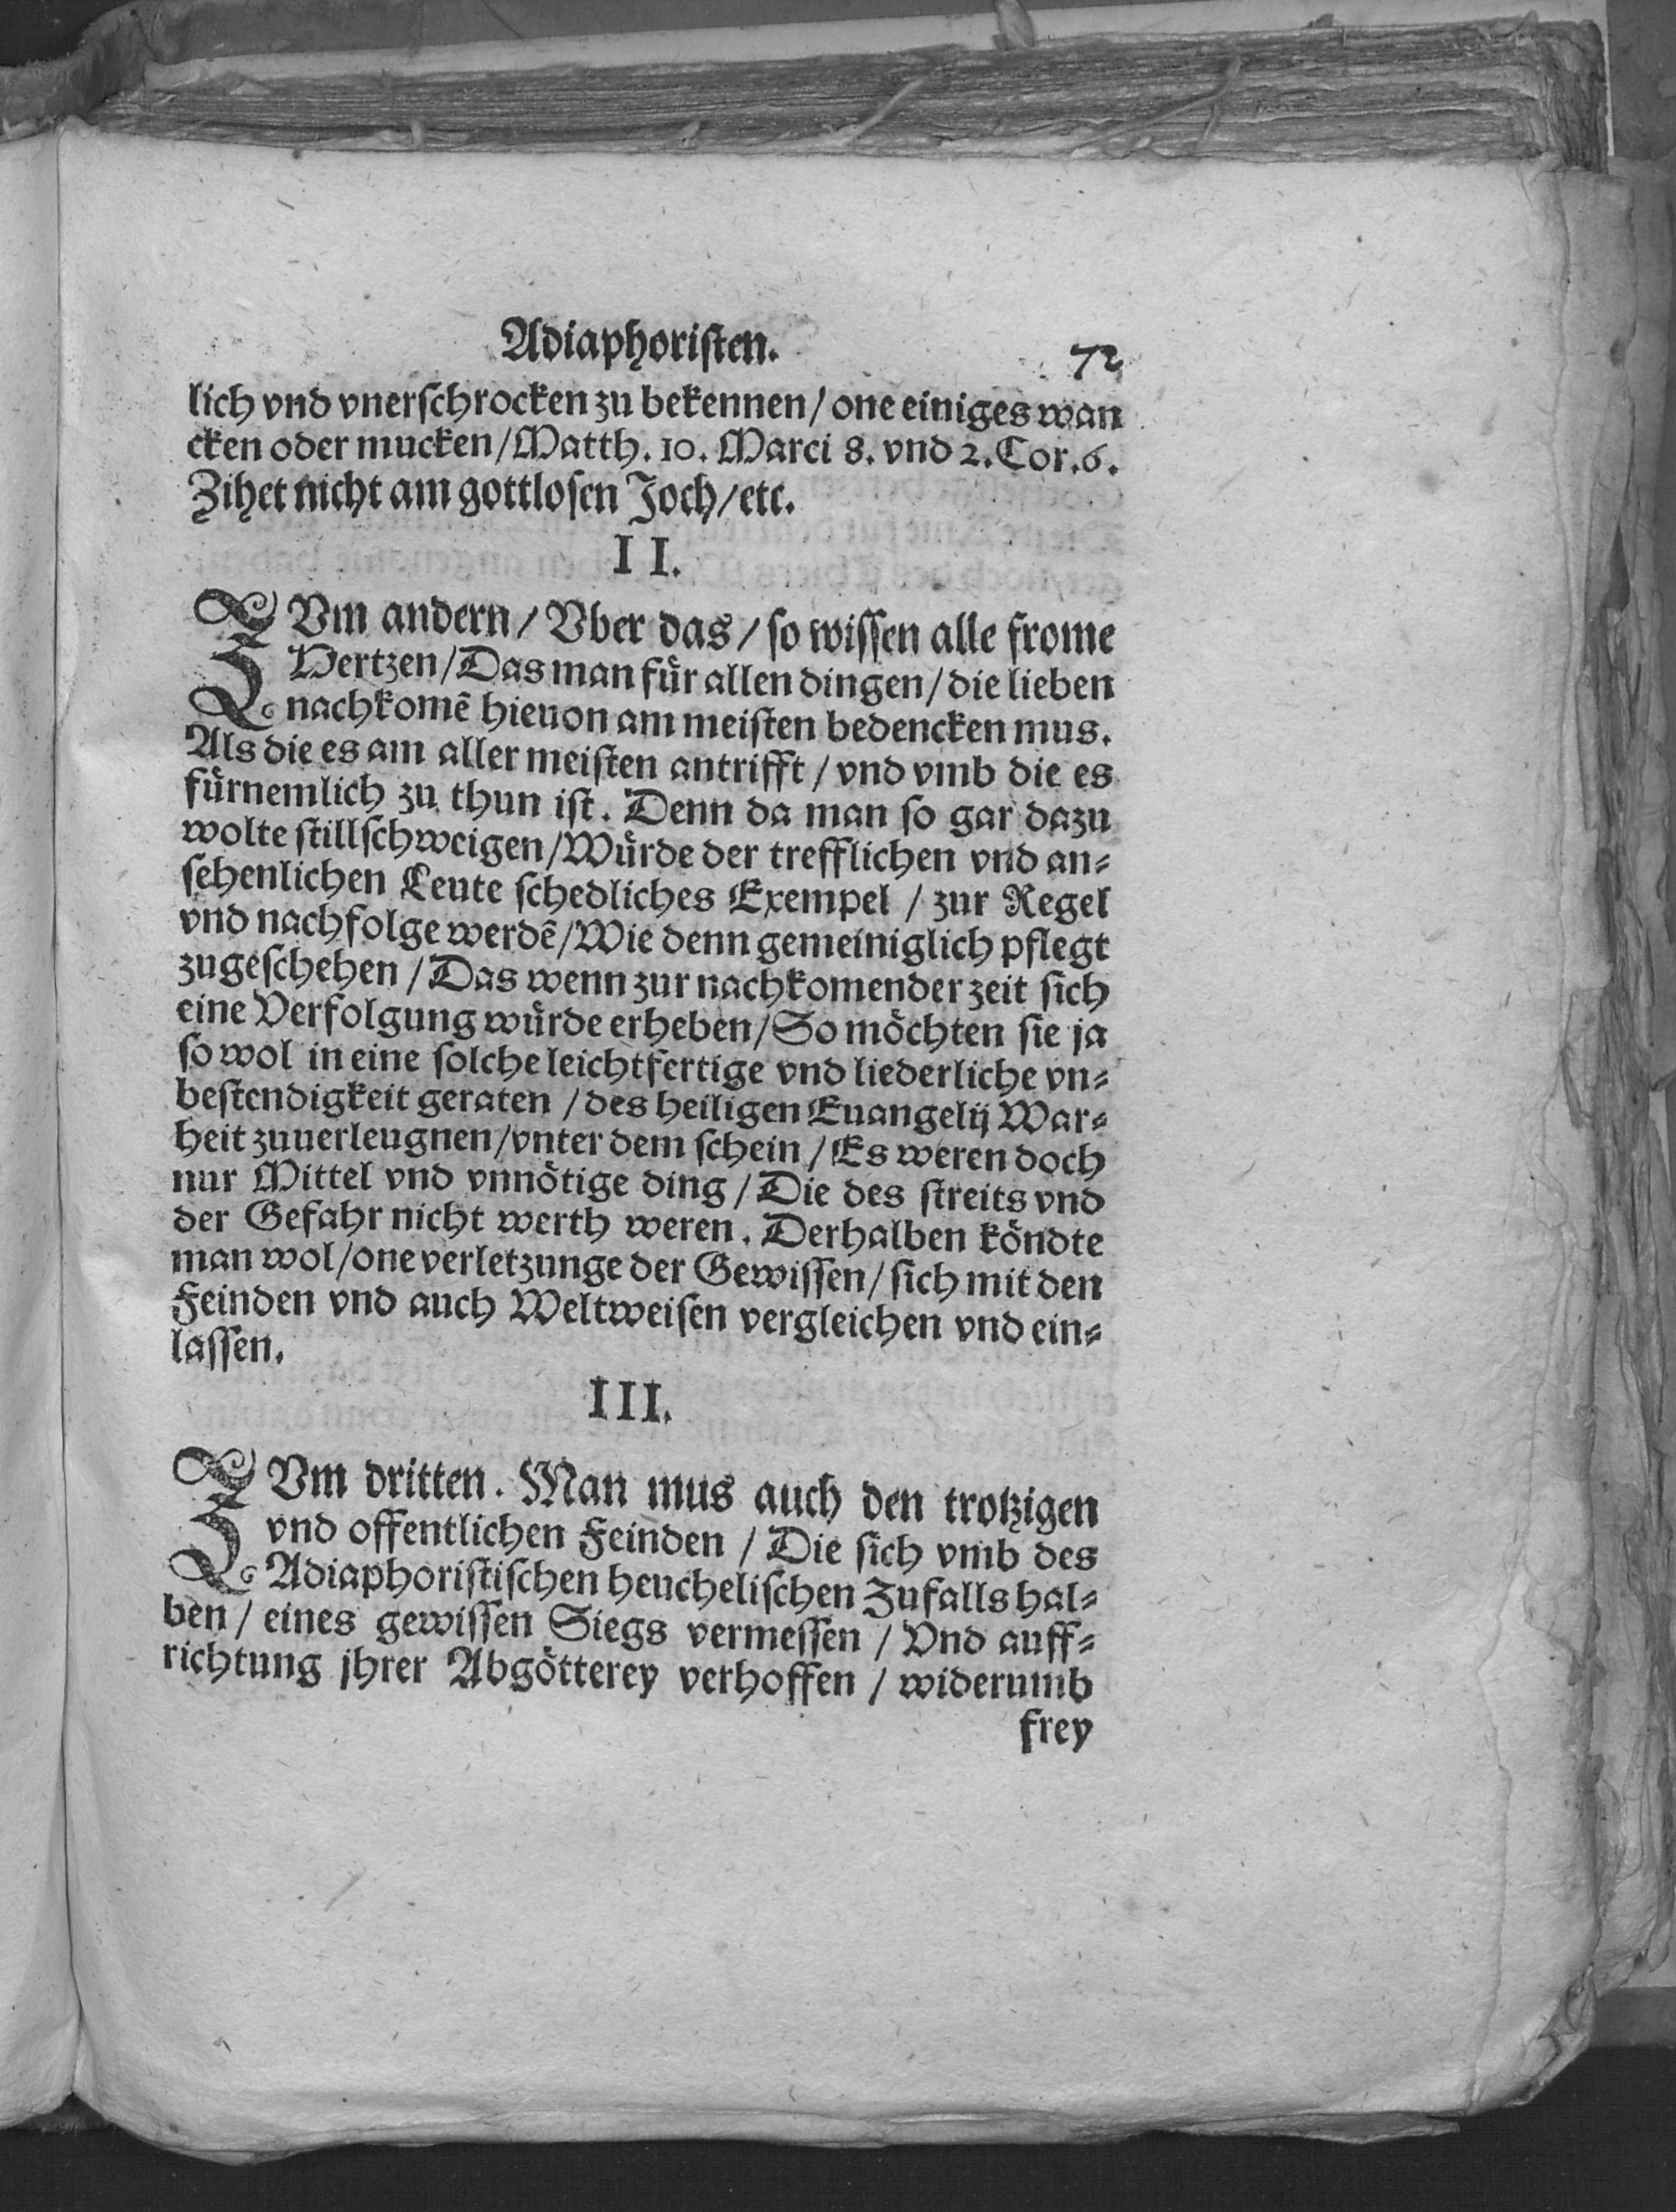 Adiaphoristen. 72
lich vnd vnerschrocken zu bekennen / one einiges wan
cken oder mucken / Matth. 10. Marci 8. vnd 2. Cor. 6.
Zihet nicht am gottlosen Joch / etc.
II.
ZVm andern / Vber das / so wissen alle frome
Hertzen / Das man für allen dingen / die lieben
nachkomẽ hieuon am meisten bedencken mus.
Als die es am aller meisten antrifft / vnd vmb die es
fürnemlich zu thun ist. Denn da man so gar dazu
wolte stillschweigen / Würde der trefflichen vnd an-
sehenlichen Leute schedliches Exempel / zur Regel
vnd nachfolge werdẽ / Wie denn gemeiniglich pflegt
zugeschehen / Das wenn zur nachkomender zeit sich
eine Verfolgung würde erheben / So möchten sie ja
so wol in eine solche leichtfertige vnd liederliche vn-
bestendigkeit geraten / des heiligen Euangelij War-
heit zuuerleugnen / vnter dem schein / Es weren doch
nur Mittel vnd vnnötige ding / Die des streits vnd
der Gefahr nicht werth weren. Derhalben köndte
man wol / one verletzunge der Gewissen / sich mit den
Feinden vnd auch Weltweisen vergleichen vnd ein-
lassen.
III.
ZVm dritten. Man mus auch den trotzigen
vnd offentlichen Feinden / Die sich vmb des
Adiaphoristischen heuchelischen Zufalls hal-
ben / eines gewissen Siegs vermessen / Vnd auff-
richtung jhrer Abgötterey verhoffen / widerumb
frey